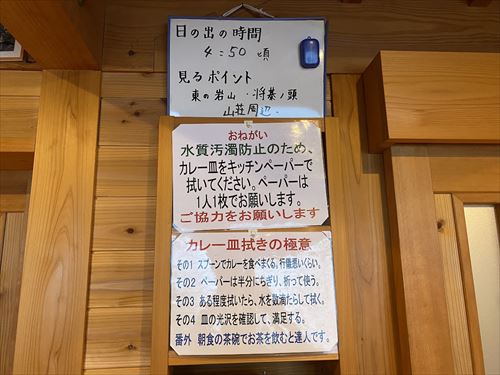 日の出の時間
4:50 頃
見るポイント
東の岩山・将棊ノ頭
山荘周辺.
おねがい
水質汚濁防止のため、
カレー皿をキッチンペーパーで
拭いてください。ペーパーは
1人1枚でお願いします。
ご協力をお願いします
カレー皿拭きの極意
その1 スプーンでカレーを食べまくる。行儀悪いくらい。
その2 ペーパーは半分にちぎり、折って使う。
その3 ある程度拭いたら、水を数滴たらして拭く。
その4 皿の光沢を確認して、満足する。
番外 朝食の茶碗でお茶を飲むと達人です。